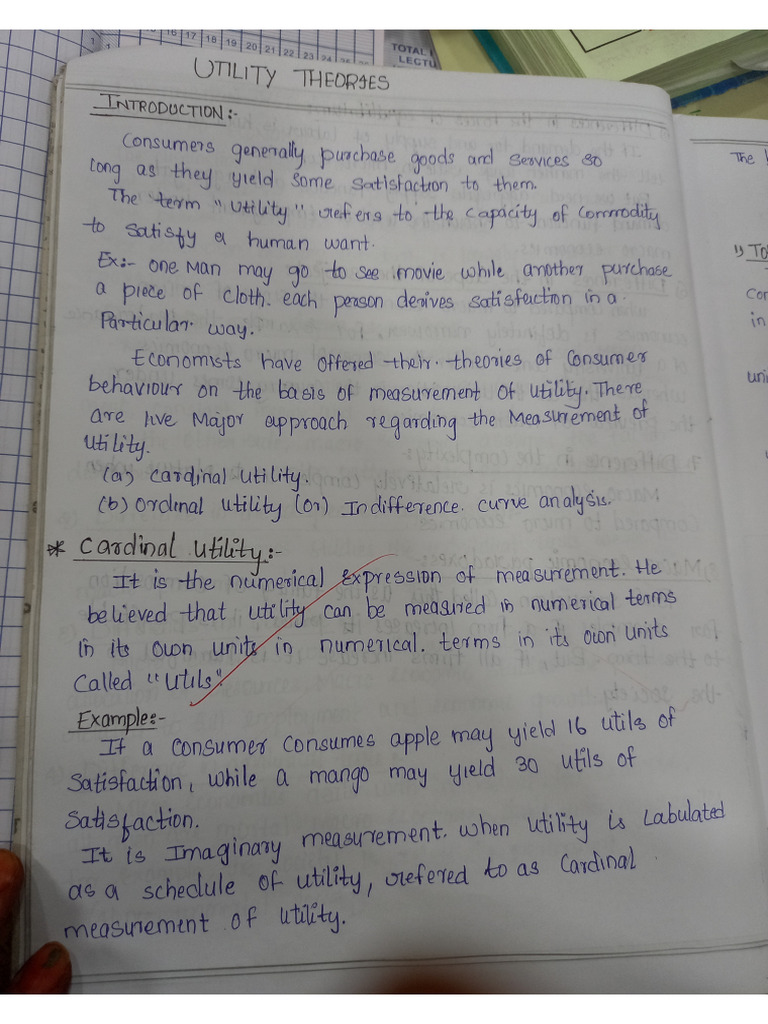 16 17 18 19 20 21 22 23 24 25
TOTAL
LECTU
UTILITY THEORIES
INTRODUCTION:-
Consumers generally purchase goods and services so
long as they yield some satisfaction to them.
The term "Utility" refers to the capacity of commodity
to satisfy a human want.
Ex:- one Man may go to see movie while another purchase
a piece of cloth. each person derives satisfaction in a
Particular way.
Economists have offered their theories of Consumer
behaviour on the basis of measurement of utility. There
are live Major approach regarding the Measurement of
Utility.
(a) Cardinal utility.
(b) Ordinal utility (or) Indifference curve analysis.
* Cardinal Utility:-
It is the numerical Expression of measurement. He
believed that utility can be measured in numerical terms
in its own units in numerical. terms in its own units
Called "Utils".
Example:-
If a consumer consumes apple may yield 16 utils of
Satisfaction, while a mango may yield 30 utils of
Satisfaction.
It is Imaginary measurement. When utility is Labulated
as a schedule of utility, refered to as Cardinal
measurement of utility.
The
1) To
Con
in
uni